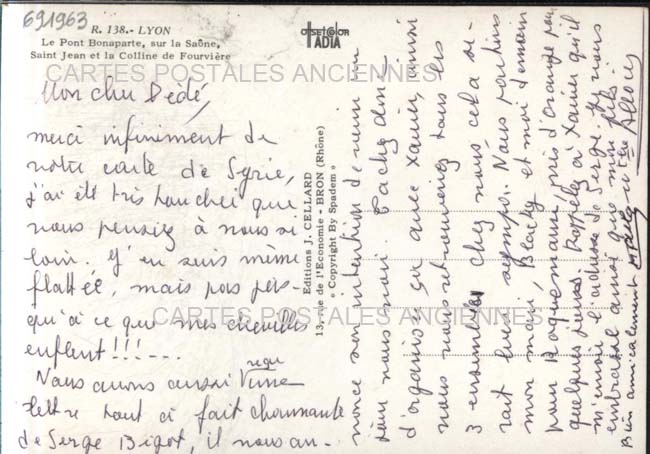 691963
R. 138.- LYON
Le Pont Bonaparte, sur la Saône,
Saint Jean et la Colline de Fourvière
OFFSET COLOR
IADIA
CARTES POSTALES ANCIENNES
Mon cher Dédé,
merci infiniment de
votre carte de Syrie,
j'ai été très touchée que
vous pensiez à nous si
loin. J'en suis même
flattée, mais pas jus-
qu'à ce que mes chevilles
enflent!!!---
Nous avons aussi reçu une
lettre tout à fait charmante
de Serge Bigot, il nous an-
CARTES POSTALES ANCIENNES
Editions J. CELLARD
13, rue de l'Economie - BRON (Rhône)
« Copyright By Spadem »
nonce son intention de venir un
jour nous voir. Tachez donc
d'organiser ça avec Xavier, ainsi
nous nous retrouverions tous les
3 ensembles chez nous, cela se-
rait bien sympa.. Nous partons
mon mari, Blacky et moi demain
pour Roquemaure, près d'Orange pour
quelques jours. Rappelez à Xavier qu'il
m'envoie l'adresse de Serge. Je vous
embrasse ainsi que mon fils.
Bien amicalement